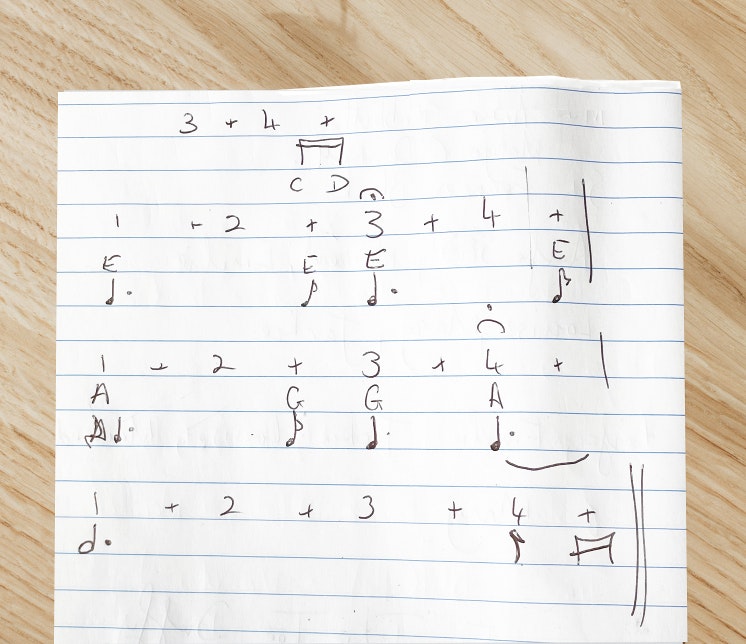 3 + 4 +
C D
1 + 2 + 3 + 4 +
E E E E
1 + 2 + 3 + 4 +
A G G A
1 + 2 + 3 + 4 +